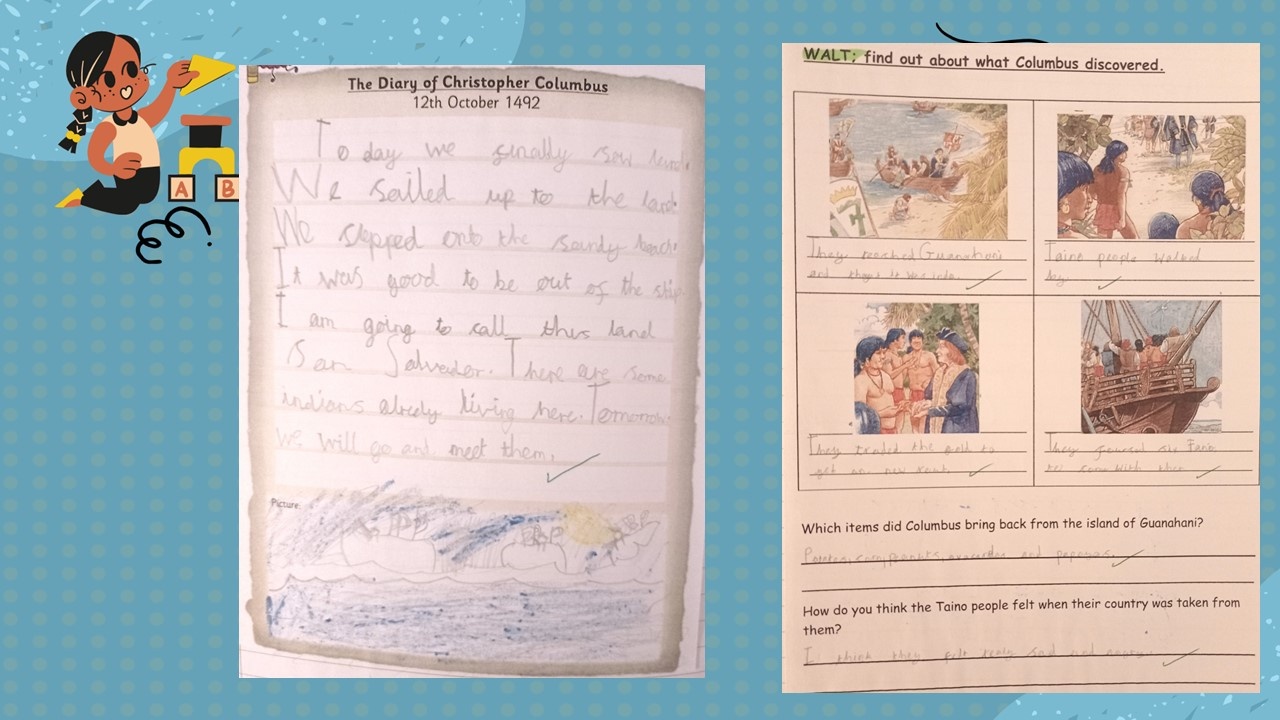 A B
The Diary of Christopher Columbus
12th October 1492
To day we finally saw land.
We sailed up to the land.
We stepped onto the sandy beach.
It was good to be out of the ship
I am going to call this land
San Salvador. There are some
indians alredy living here. Tomorrow
we will go and meet them.
Picture:
WALT: find out about what Columbus discovered.
They reached Guanahani
and
Taino people walked
They traded the gold to
get
They Taino
to come with them
Which items did Columbus bring back from the island of Guanahani?
and papayas.
How do you think the Taino people felt when their country was taken from
them?
I think they felt sad and angry.